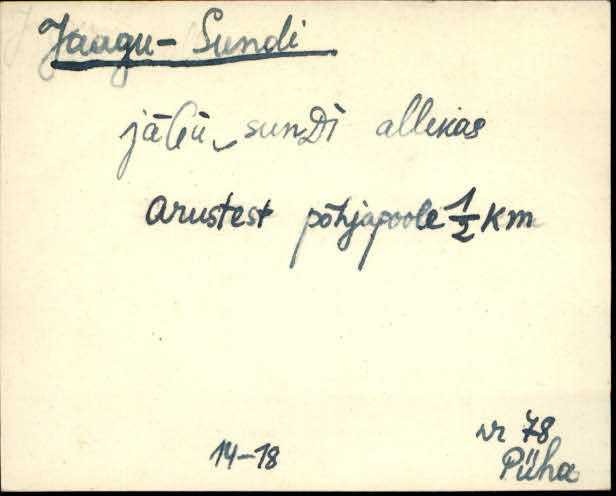 Jaagu-Sundi
sunDi allikas
Arustest põhjapoole 1/2 km
14-18
nr 78
Püha